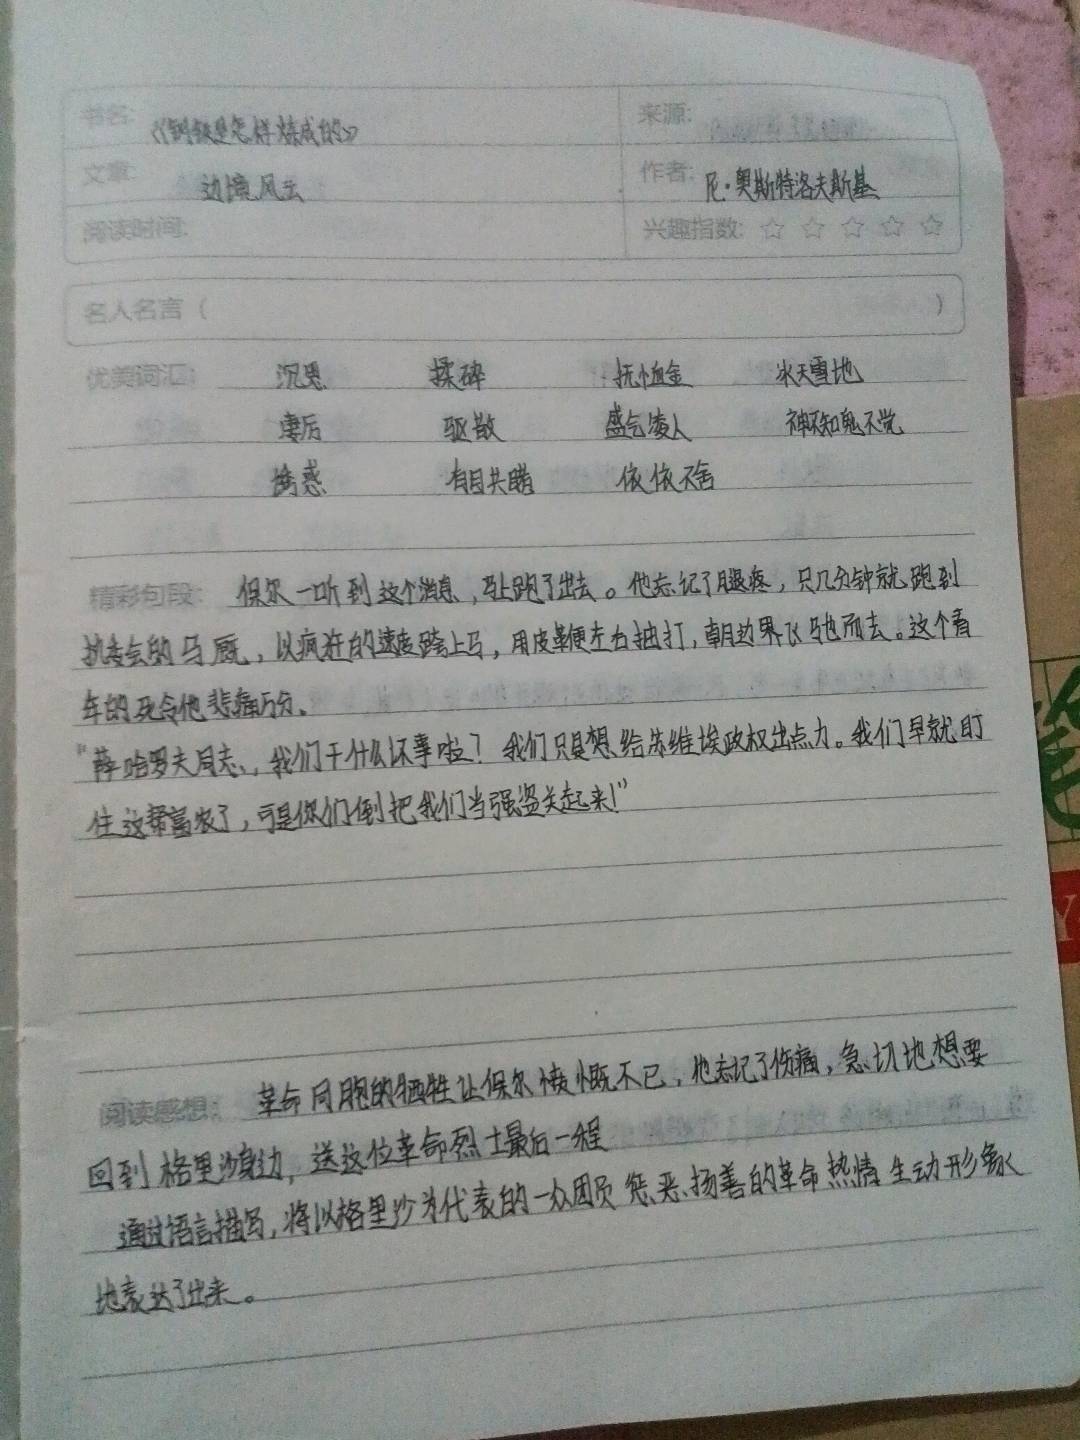 书名: 《钢铁是怎样炼成的》 来源:
文章: 边境风云 作者: 尼·奥斯特洛夫斯基
阅读时间: 兴趣指数: ☆ ☆ ☆ ☆ ☆
名人名言（ ）
优美词汇: 沉思 揉碎 抚恤金 冰天雪地
凄厉 驱散 盛气凌人 神不知鬼不觉
诱惑 有目共睹 依依不舍
精彩句段: 保尔一听到这个消息,马上跑了出去。他忘记了腿疼,只几分钟就跑到
执委会的马厩,以疯狂的速度跨上马,用皮鞭左右抽打,朝边界飞驰而去。这个青
年的死令他悲痛万分。
“薛哈罗夫同志,我们干什么坏事啦?我们只是想给苏维埃政权出点力。我们早就盯
住这帮富农了,可是你们倒把我们当强盗关起来!”
阅读感想: 革命同胞的牺牲让保尔愤慨不已,他忘记了伤痛,急切地想要
回到格里沙身边,送这位革命烈士最后一程
通过语言描写,将以格里沙为代表的一众团员惩恶扬善的革命热情生动形象
地表达了出来。
Y